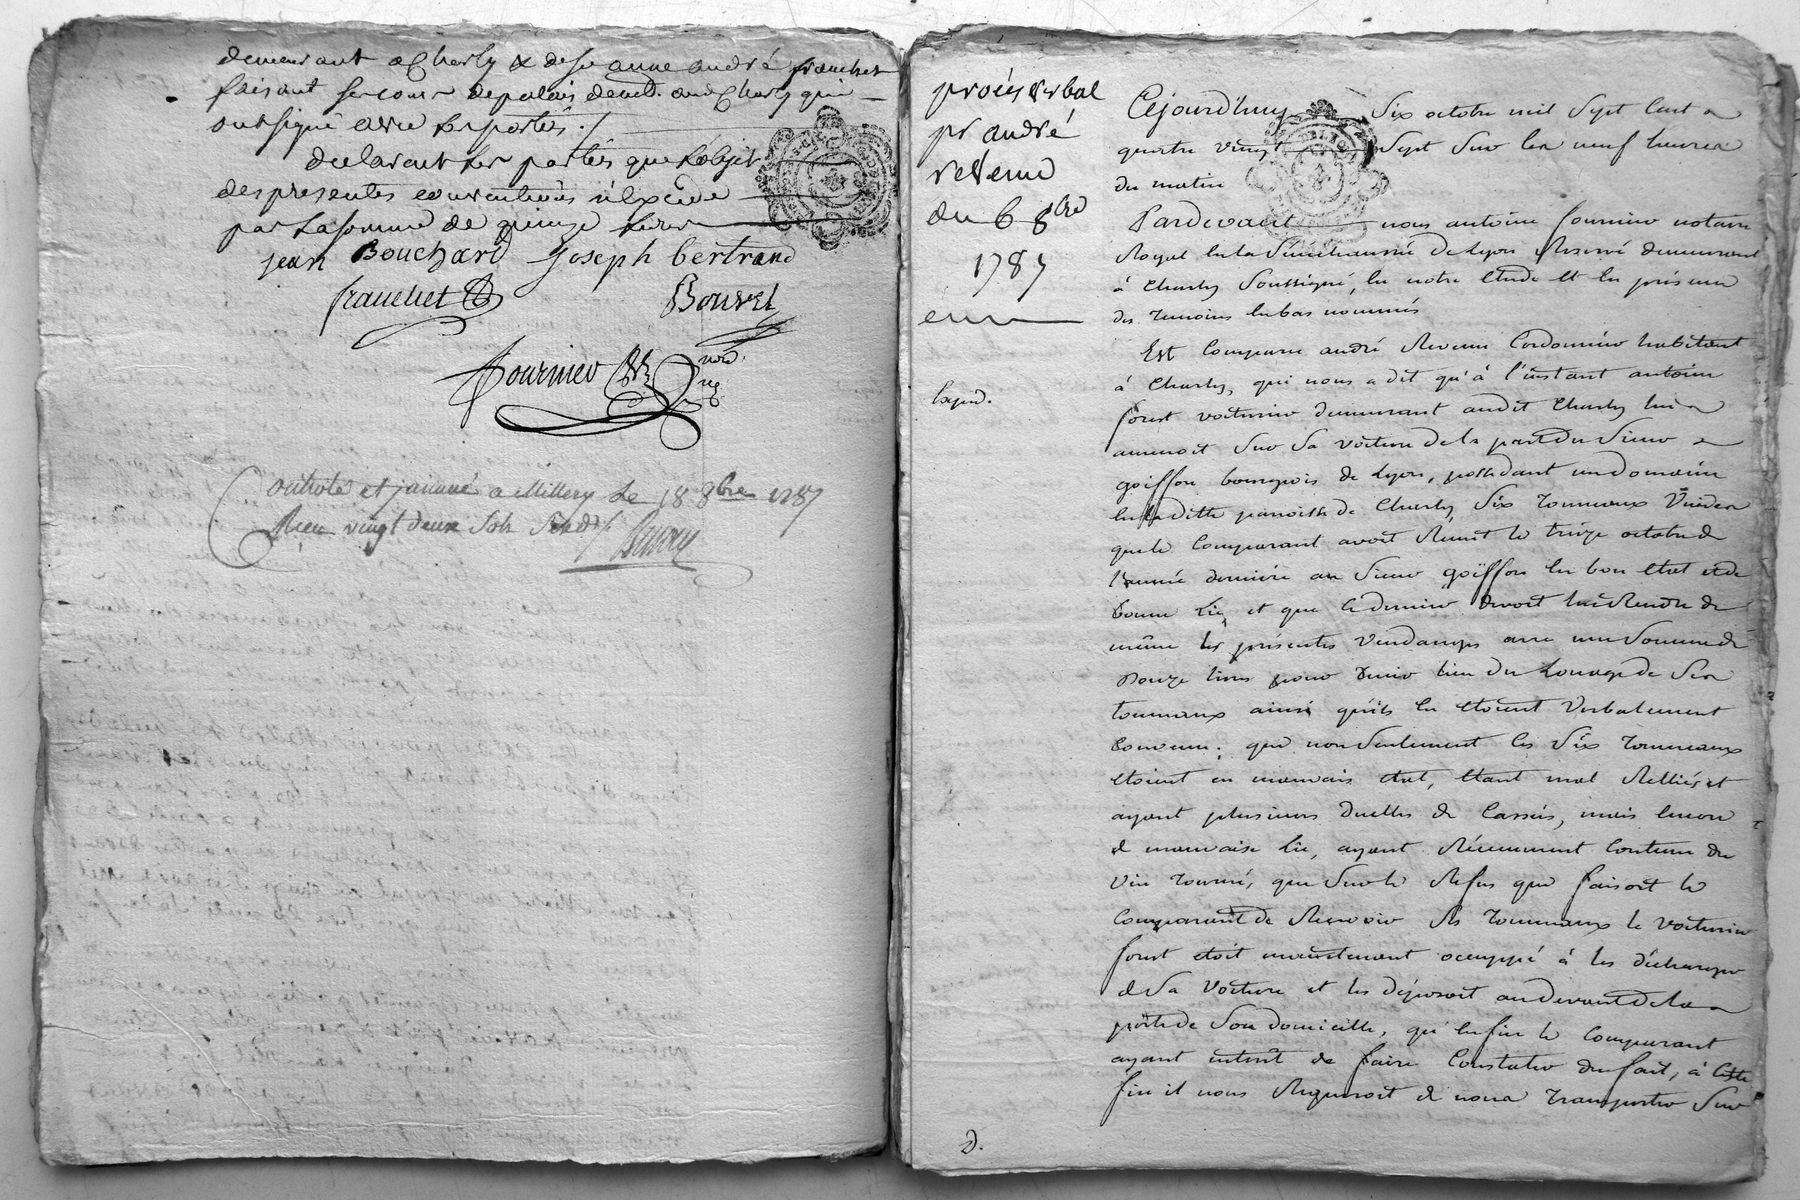 demeurant a Charly & de Jeanne andré franchet
faisant sejour depalais demt. aud. Charly qui
ont signé avec les parties ./
declarent les parties que l'objet
des presentes conventions n'excede
pas la somme de quinze livres
jean Bouchard joseph bertrand
franchet Bouvet
Fournier
nore.
Controlé et a Millery le 18 8bre 1787
Reçu vingt deux sols six d.
procés verbal
pr andré
revenu
du 6 8bre
1787
exped.
Cejourd'huy six octobre mil sept cent
quatre vingt sept sur les neuf heures
du matin
Pardevant nous antoine fournier notaire
Royal en la Sénéchaussée de Lyon Reservé demeurant
à Charly soussigné, en notre etude et en présence
des temoins enbas nommés
Est comparu andré Revenu Cordonnier habitant
à Charly, qui nous a dit qu'à l'instant antoine
forest voiturier demeurant audit Charly lui
amenoit sur sa voiture de la part du sieur
goiffon bourgeois de Lyon, possedant un domaine
en laditte paroisse de Charly six tonneaux vuides
que le comparant avoit Remit le treize octobre de
l'année derniere au sieur goiffon en bon etat et de
bonne Lie, et que ce dernier devoit lui Rendre de
même les présentes vendanges avec une somme de
douze livres pour tenir lieu du Louage de ses
tonneaux ainsi qu'ils en etoient verbalement
convenu. que non seulement les six tonneaux
etoient en mauvais etat, etant mal Relliés et
ayant plusieurs duelles de Cassées, mais encore
de mauvaise Lie, ayant Récemment contenu du
vin tourné, que sur le Refus que faisoit le
comparant de Recevoir les tonneaux le voiturier
forest etoit occuppé à les décharger
de sa voiture et les déposoit audevant de la
porte de son domicille, qu'enfin le comparant
ayant intérêt de faire constater du fait, à cette
fin il nous Requeroit de nous transporter sur